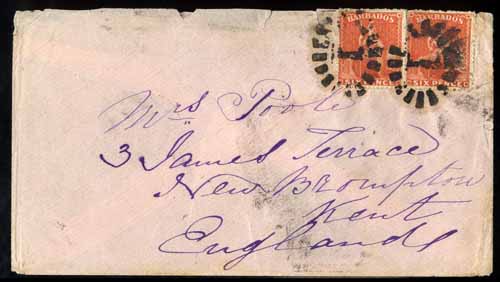 BARBADOS BARBADOS
SIX PENCE SIX PENCE
Mrs Poole
3 James Terrace
New Brompton
Kent
England